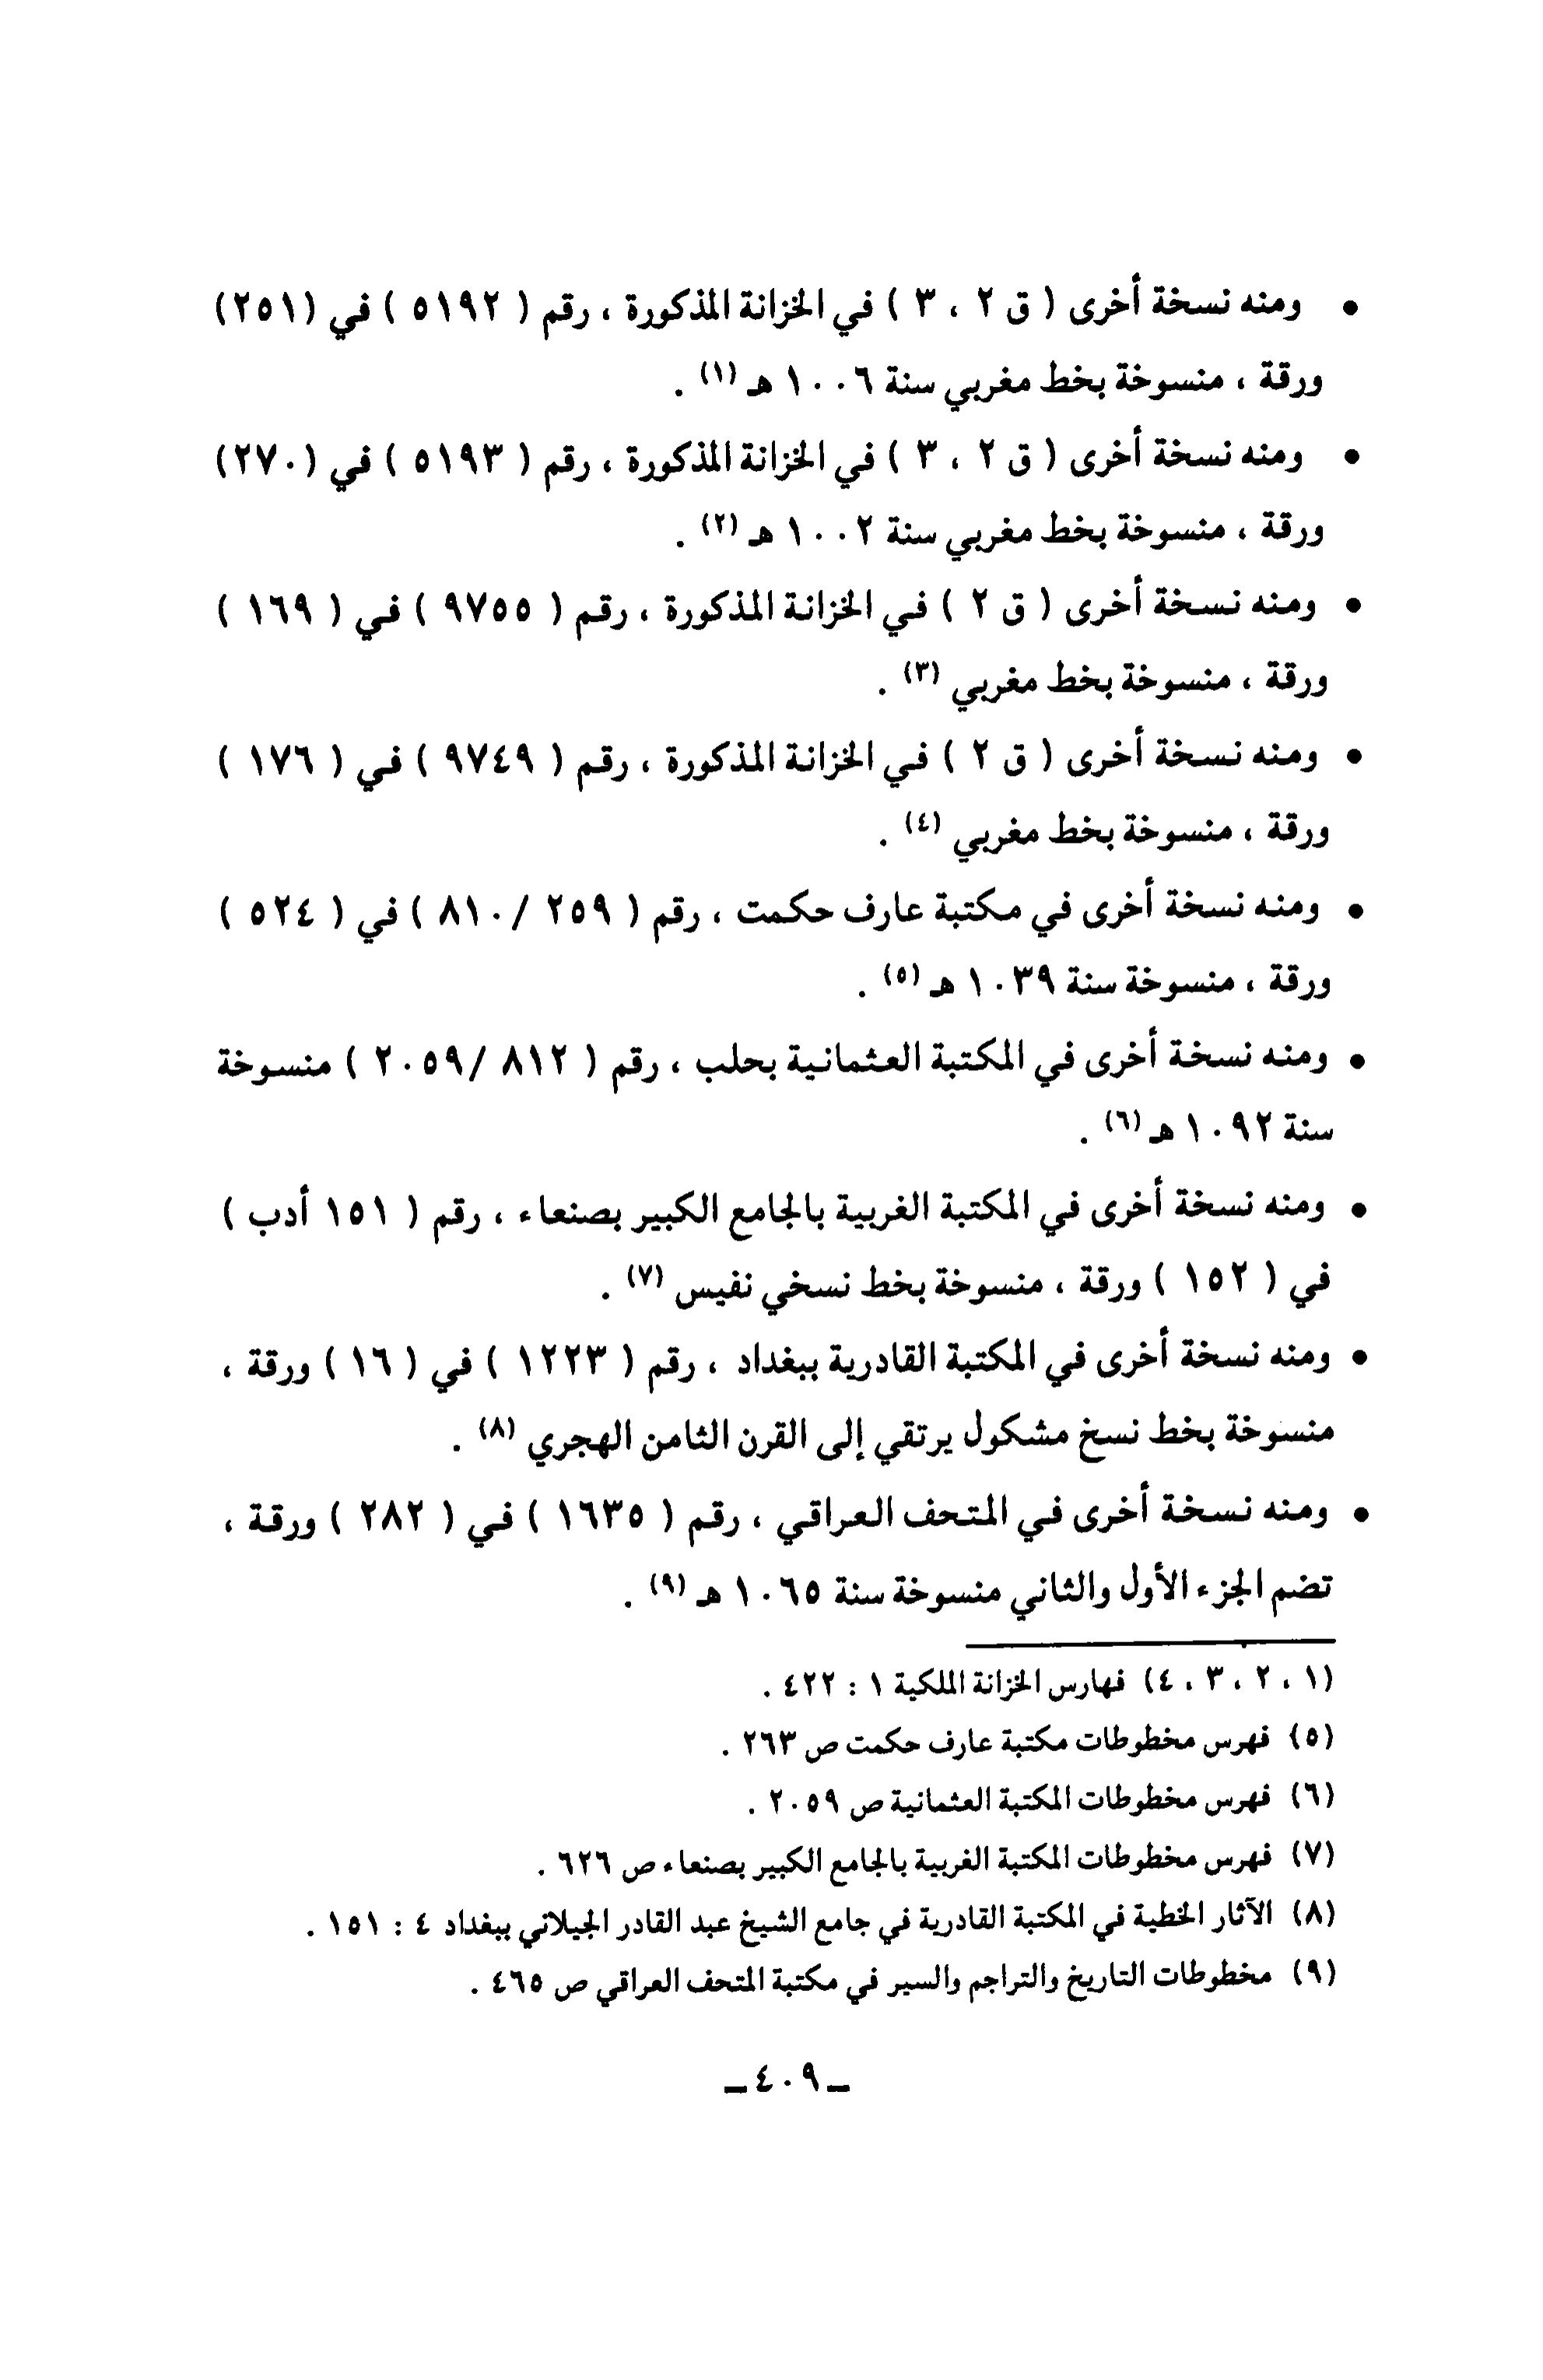 • ومنه نسخة أخرى ( ق ٢ ، ٣ ) في الخزانة المذكورة ، رقم ( ٥١٩٢ ) في (٢٥١)
ورقة ، منسوخة بخط مغربي سنة ١٠٠٦ هـ (١) .
• ومنه نسخة أخرى ( ق ٢ ، ٣ ) في الخزانة المذكورة ، رقم ( ٥١٩٣ ) في (٢٧٠)
ورقة ، منسوخة بخط مغربي سنة ١٠٠٢ هـ (٢) .
• ومنه نسخة أخرى ( ق ٢ ) في الخزانة المذكورة ، رقم ( ٩٧٥٥ ) في ( ١٦٩ )
ورقة ، منسوخة بخط مغربي (٣) .
• ومنه نسخة أخرى ( ق ٢ ) في الخزانة المذكورة ، رقم ( ٩٧٤٩ ) في ( ١٧٦ )
ورقة ، منسوخة بخط مغربي (٤) .
• ومنه نسخة أخرى في مكتبة عارف حكمت ، رقم ( ٢٥٩ /٨١٠ ) في ( ٥٢٤ )
ورقة ، منسوخة سنة ١٠٣٩ هـ (٥) .
• ومنه نسخة أخرى في المكتبة العثمانية بحلب ، رقم ( ٨١٢ /٢٠٥٩ ) منسوخة
سنة ١٠٩٢ هـ (٦) .
• ومنه نسخة أخرى في المكتبة الغربية بالجامع الكبير بصنعاء ، رقم ( ١٥١ أدب )
في ( ١٥٢ ) ورقة ، منسوخة بخط نسخي نفيس (٧) .
• ومنه نسخة أخرى في المكتبة القادرية ببغداد ، رقم ( ١٢٢٣ ) في ( ١٦ ) ورقة ،
منسوخة بخط نسخ مشكول يرتقي إلى القرن الثامن الهجري (٨) .
• ومنه نسخة أخرى في المتحف العراقي ، رقم ( ١٦٣٥ ) في ( ٢٨٢ ) ورقة ،
تضم الجزء الأول والثاني منسوخة سنة ١٠٦٥ هـ (٩) .
(١ ، ٢ ، ٣ ، ٤) فهارس الخزانة الملكية ١ : ٤٢٢ .
(٥) فهرس مخطوطات مكتبة عارف حكمت ص ٢٦٣ .
(٦) فهرس مخطوطات المكتبة العثمانية ص ٢٠٥٩ .
(٧) فهرس مخطوطات المكتبة الغربية بالجامع الكبير بصنعاء ص ٦٢٦ .
(٨) الآثار الخطية في المكتبة القادرية في جامع الشيخ عبد القادر الجيلاني ببغداد ٤ : ١٥١ .
(٩) مخطوطات التاريخ والتراجم والسير في مكتبة المتحف العراقي ص ٤٦٥ .
ـ ٤٠٩ ـ